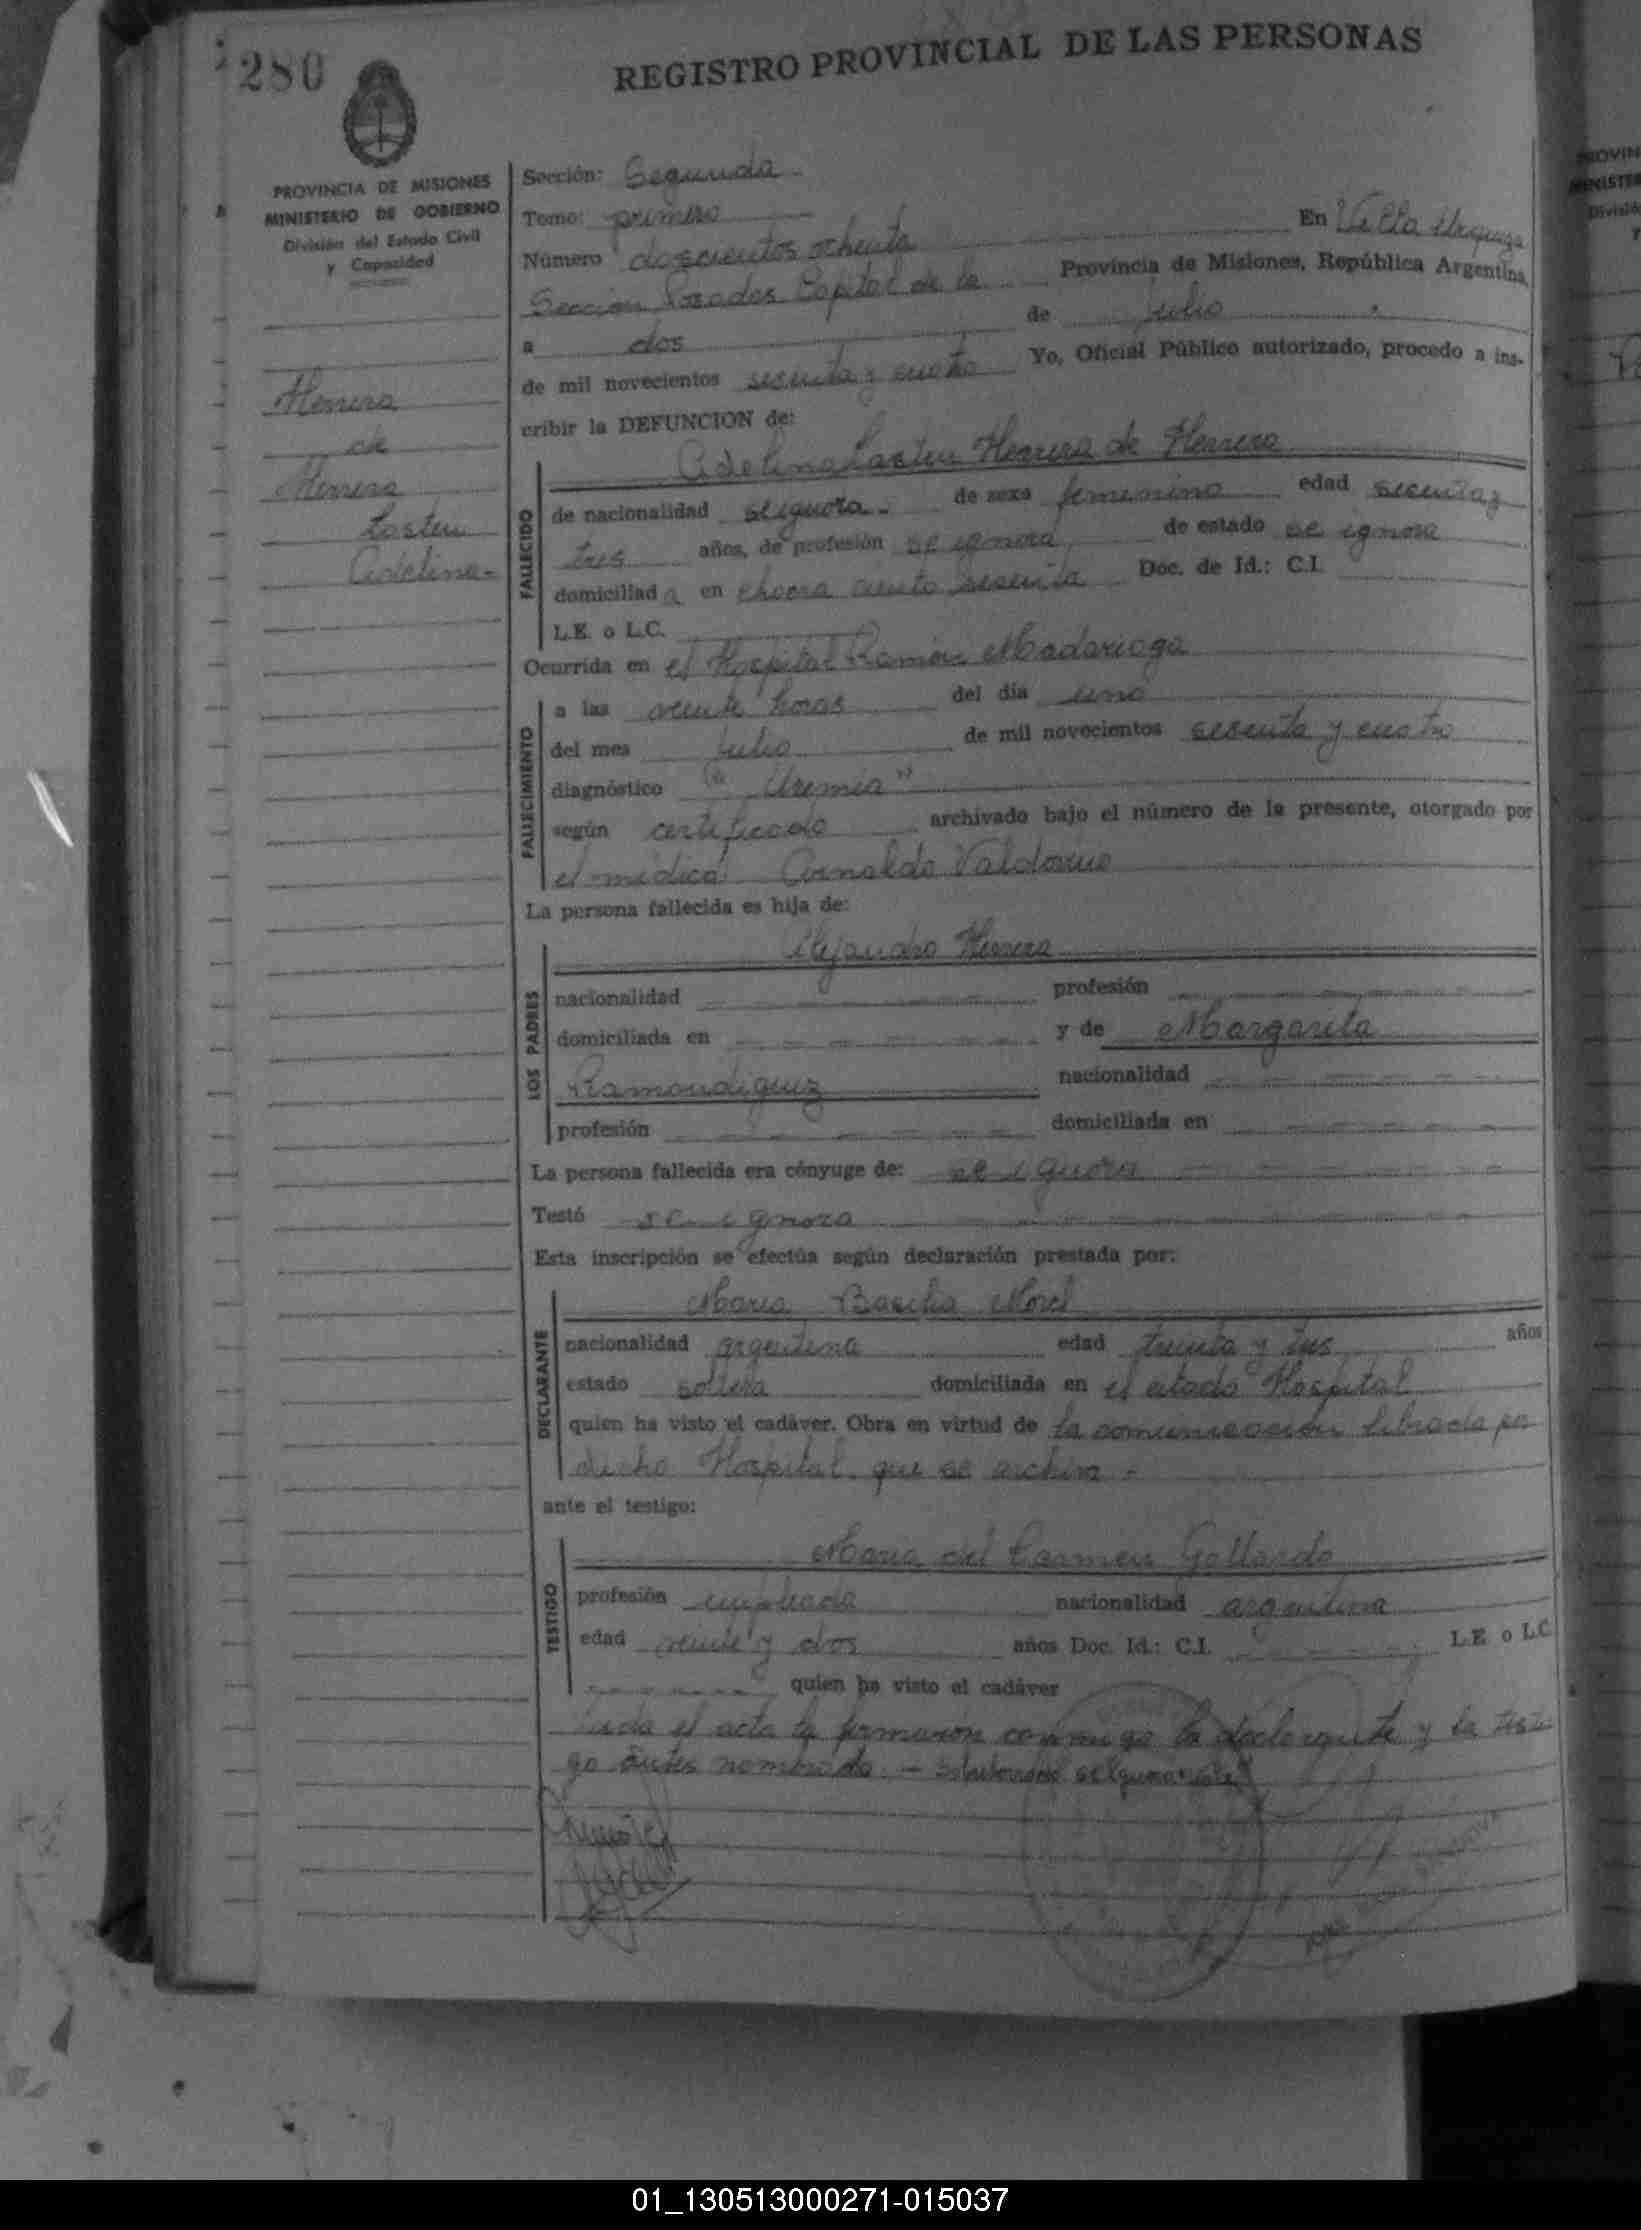 280
REGISTRO PROVINCIAL DE LAS PERSONAS
PROVINCIA DE MISIONES
MINISTERIO DE GOBIERNO
División del Estado Civil
y Capacidad
Herrera
de
Herrera
Adelina-
Sección: Segunda
Tomo: primero
Número doscientos ochenta En Villa Urquiza
Sección Posadas Capital de la Provincia de Misiones, República Argentina,
a dos de julio
de mil novecientos sesenta y cuatro Yo, Oficial Público autorizado, procedo a ins-
cribir la DEFUNCION de:
Adelina Herrera de Herrera
FALLECIDO
de nacionalidad se ignora.- de sexo femenino edad sesenta y
tres años, de profesión se ignora de estado se ignora
domiciliad a en chacra ciento sesenta Doc. de Id.: C.I.
L.E. o L.C.
Ocurrida en el Hospital Ramón Madariaga
FALLECIMIENTO
a las veinte horas del día uno
del mes julio de mil novecientos sesenta y cuatro
diagnóstico "Uremia"
según certificado archivado bajo el número de la presente, otorgado por
el médico Arnaldo
La persona fallecida es hija de:
Alejandro Herrera
LOS PADRES
nacionalidad profesión
domiciliada en y de Margarita
nacionalidad
profesión domiciliada en
La persona fallecida era cónyuge de: se ignora
Testó se ignora
Esta inscripción se efectúa según declaración prestada por:
Maria Basilia Morel
DECLARANTE
nacionalidad argentina edad treinta y tres años
estado soltera domiciliada en el citado Hospital
quien ha visto el cadáver. Obra en virtud de la comunicación librada por
dicho Hospital que se archiva -
ante el testigo:
Maria del Carmen Gallardo
TESTIGO
profesión empleada nacionalidad argentina
edad veinte y dos años Doc. Id.: C.I. L.E. o L.C.
quien ha visto el cadáver
Leida el acta la firmaron conmigo la declarante y la testi-
go antes nombrada. -
PROVIN
MINISTER
01_130513000271-015037